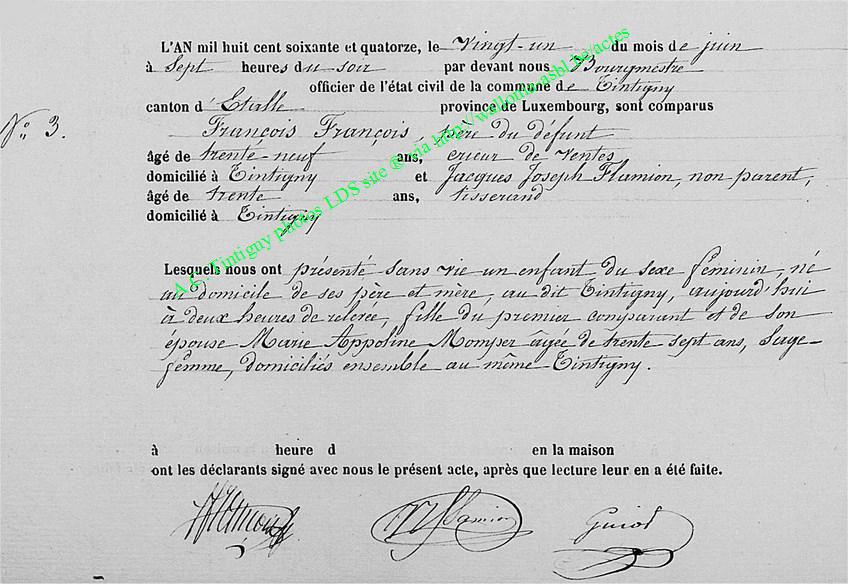 L'AN mil huit cent soixante et quatorze, le Vingt-un du mois de juin
à Sept heures du soir par devant nous Bourgmestre
officier de l'état civil de la commune de Tintigny
canton d' Etalle province de Luxembourg, sont comparus
N° 3.
François François, père du défunt
âgé de trente-neuf ans, crieur de Ventes
domicilié à Tintigny et Jacques Joseph Flamion, non parent,
âgé de trente ans, tisserand
domicilié à Tintigny
A.C. Tintigny photos LDS site ® via http://wallonia-asbl.be/actes
Lesquels nous ont présenté sans vie un enfant du sexe féminin, né
au domicile de ses père et mère, au dit Tintigny, aujourd'hui
à deux heures de relevée, fille du premier comparant et de son
épouse Marie Appoline Momper âgée de trente sept ans, Sage-
femme, domiciliés ensemble au même Tintigny.
à heure d en la maison
ont les déclarants signé avec nous le présent acte, après que lecture leur en a été faite.
Flamion Guiot